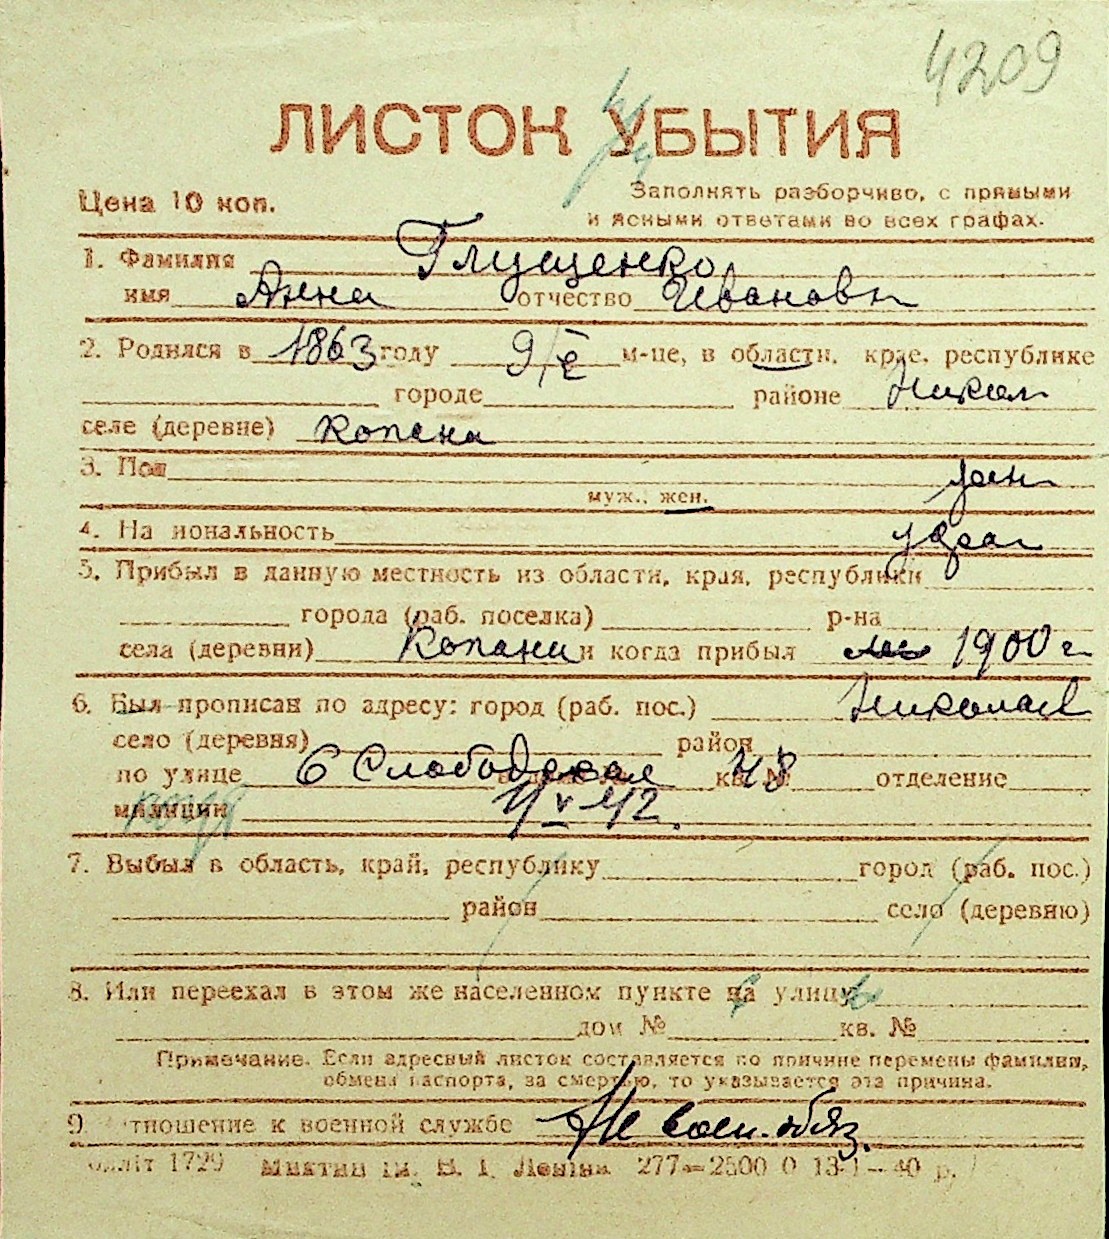 4209
ЛИСТОК УБЫТИЯ
Цена 10 коп.
Заполнять разборчиво, с прямыми
и ясными ответами во всех графах.
1. Фамилия Глущенко
имя Анна отчество Ивановн
2. Родился в 1863 году 9/X м-це, в области, крае, республике
городе районе Никол
селе (деревне) Копани
3. Пол жен
муж., жен.
4. На иональность укра
5. Прибыл в данную местность из области, края, республики
города (раб. поселка) р-на
села (деревни) Копани и когда прибыл 1900 г
6. Был прописан по адресу: город (раб. пос.) Николаев
село (деревня) район
по улице 6 Слободская кв. № 48 отделение
милиции
V 42.
7. Выбыл в область, край, республику город (раб. пос.)
район село (деревню)
8. Или переехал в этом же населенном пункте на улицу
дом № кв. №
Примечание. Если адресный листок составляется по причине перемены фамилии,
обмена паспорта, за смертью, то указывается эта причина.
9. тношение к военной службе Не воен. обяз.
1729 В. І. Леніна 277—2500 0 13-1—40 р.